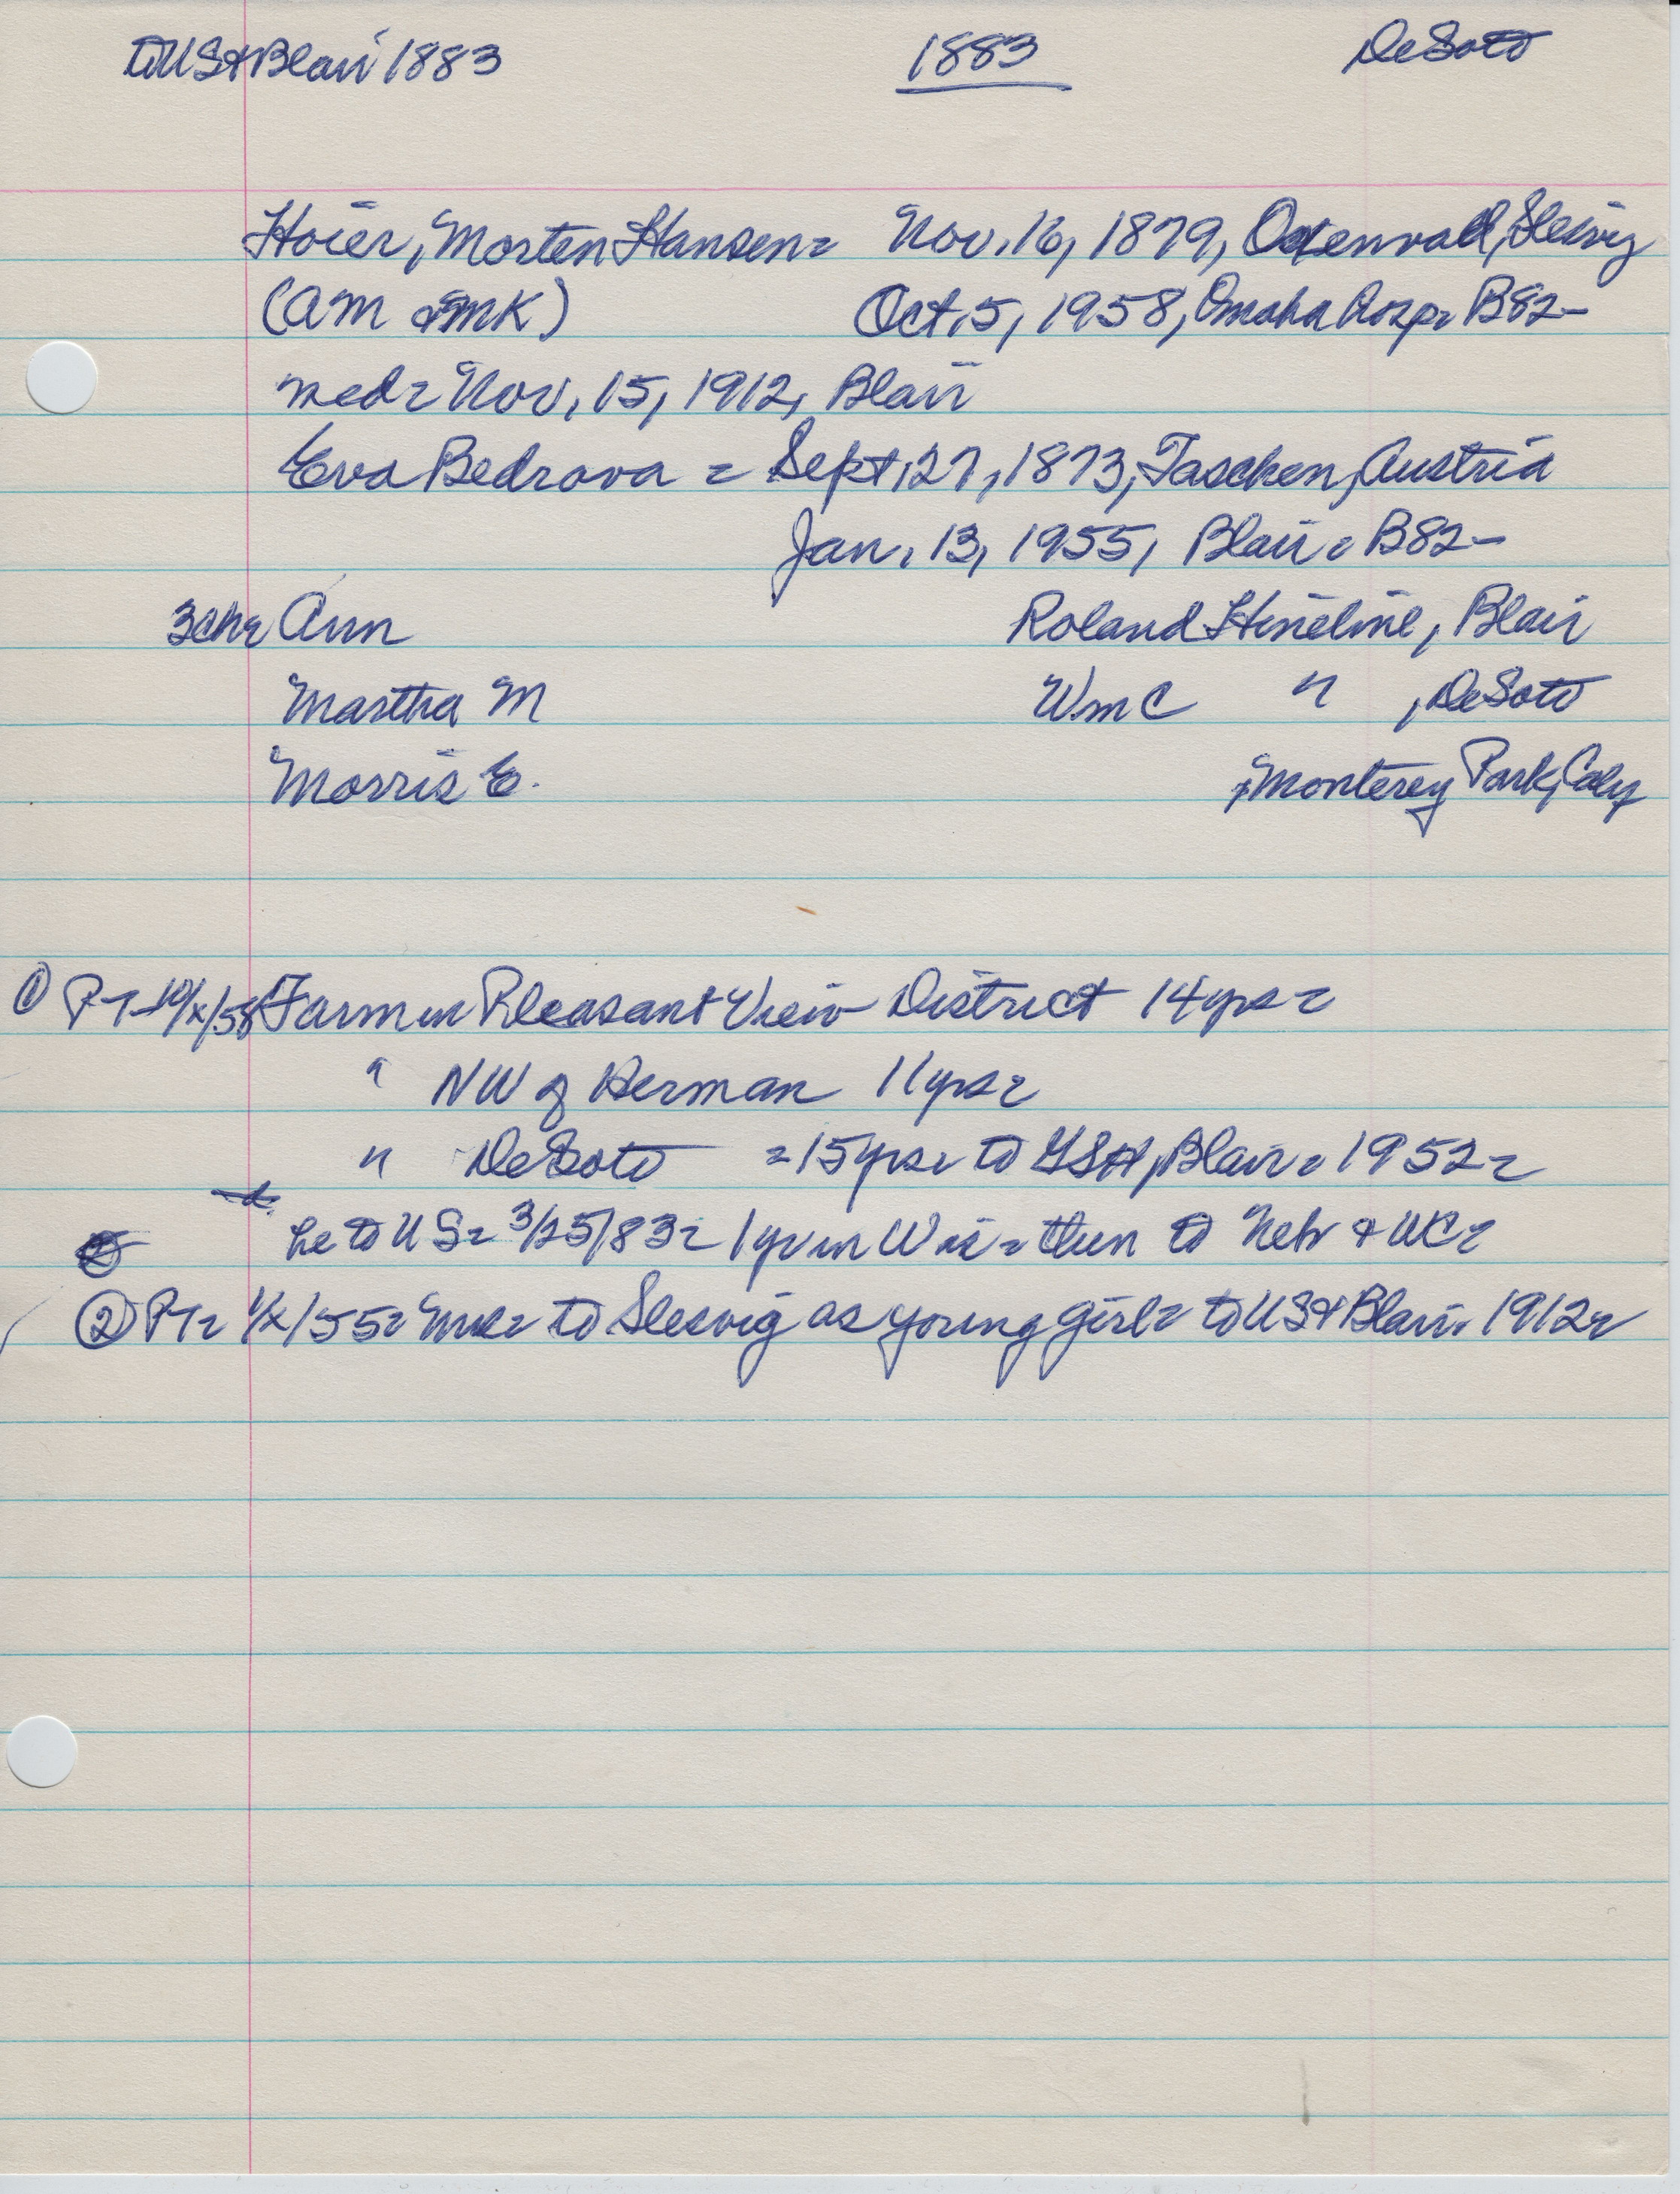 to US & Blair 1883 1883 DeSoto
Hoier, Morten Hansen= Nov. 16, 1879, Oxenvad, Slesvig
(AM & MK) Oct. 5, 1958, Omaha Hosp= B82-
med= Nov. 15, 1912, Blair
Eva Bedrava = Sept. 27, 1873, Taschen, Austria
Jan. 13, 1955, Blair= B82-
3ch= Ann Roland Hineline, Blair
Martha M WmC " , DeSoto
Morris E. , Monterey Park, Calif
① PT-10/x/58 Farm in Pleasant View District 14yrs=
" NW of Herman 11yrs=
" DeSoto =15yrs= to Blair= 1952=
he to US= 3/25/83= 1yr in Wis= then to Nebr & WC=
② PT= 1/x/55= to Slesvig as young girl= to US & Blair= 1912=